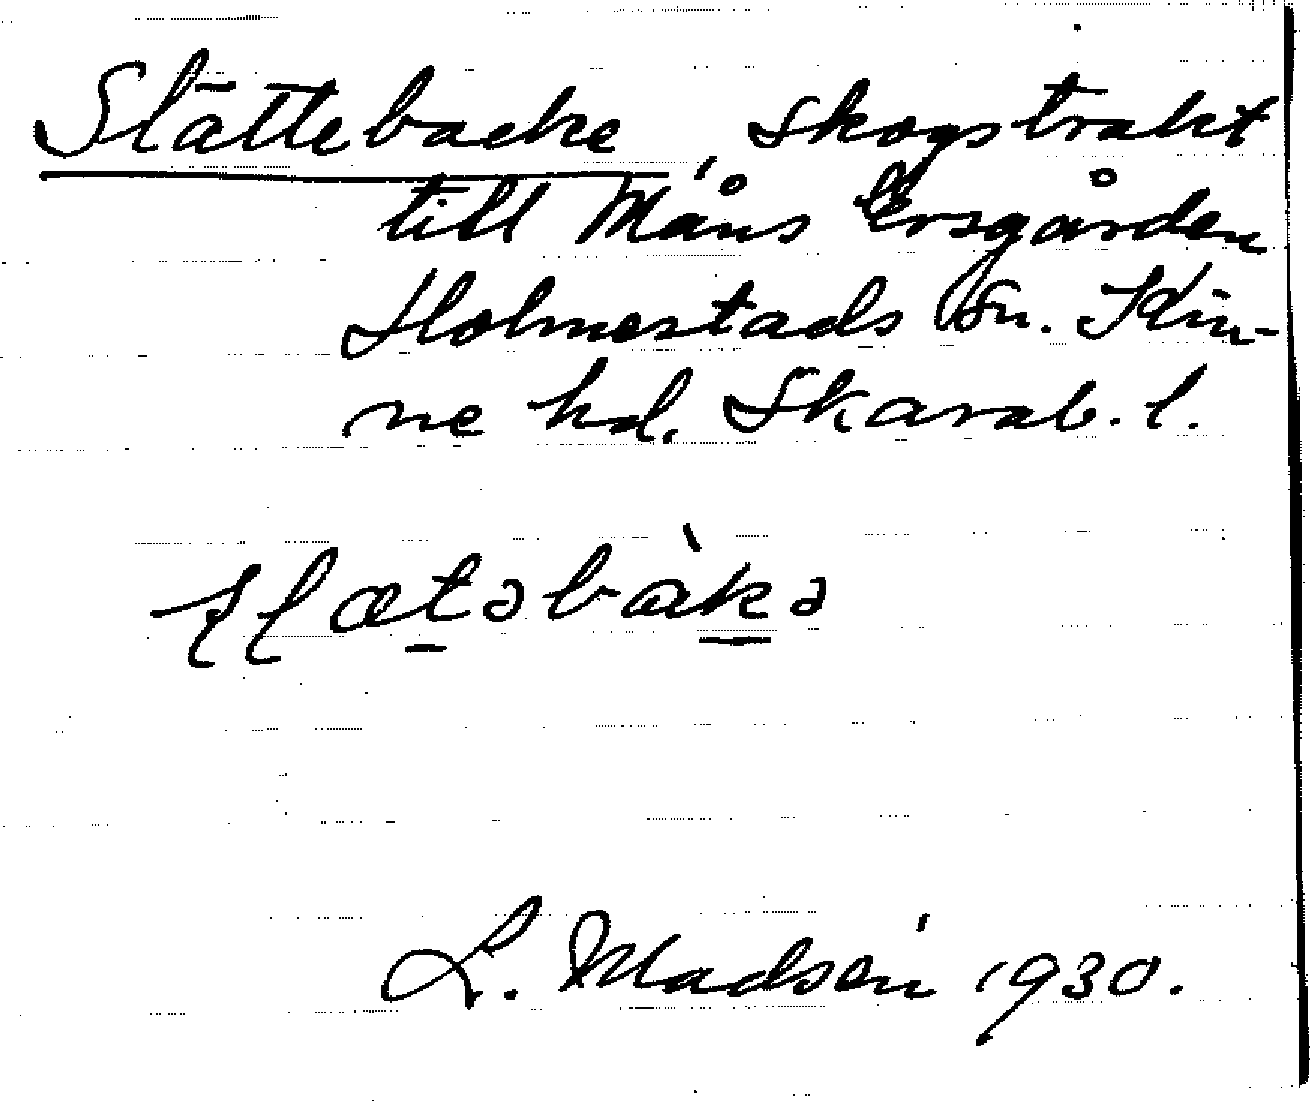 Slättebacke, skogstrakt
till Måns Ersgården
Holmestads sn. Kin-
ne hd. Skarab. l.
slætəbàkə
L. Madsén 1930.